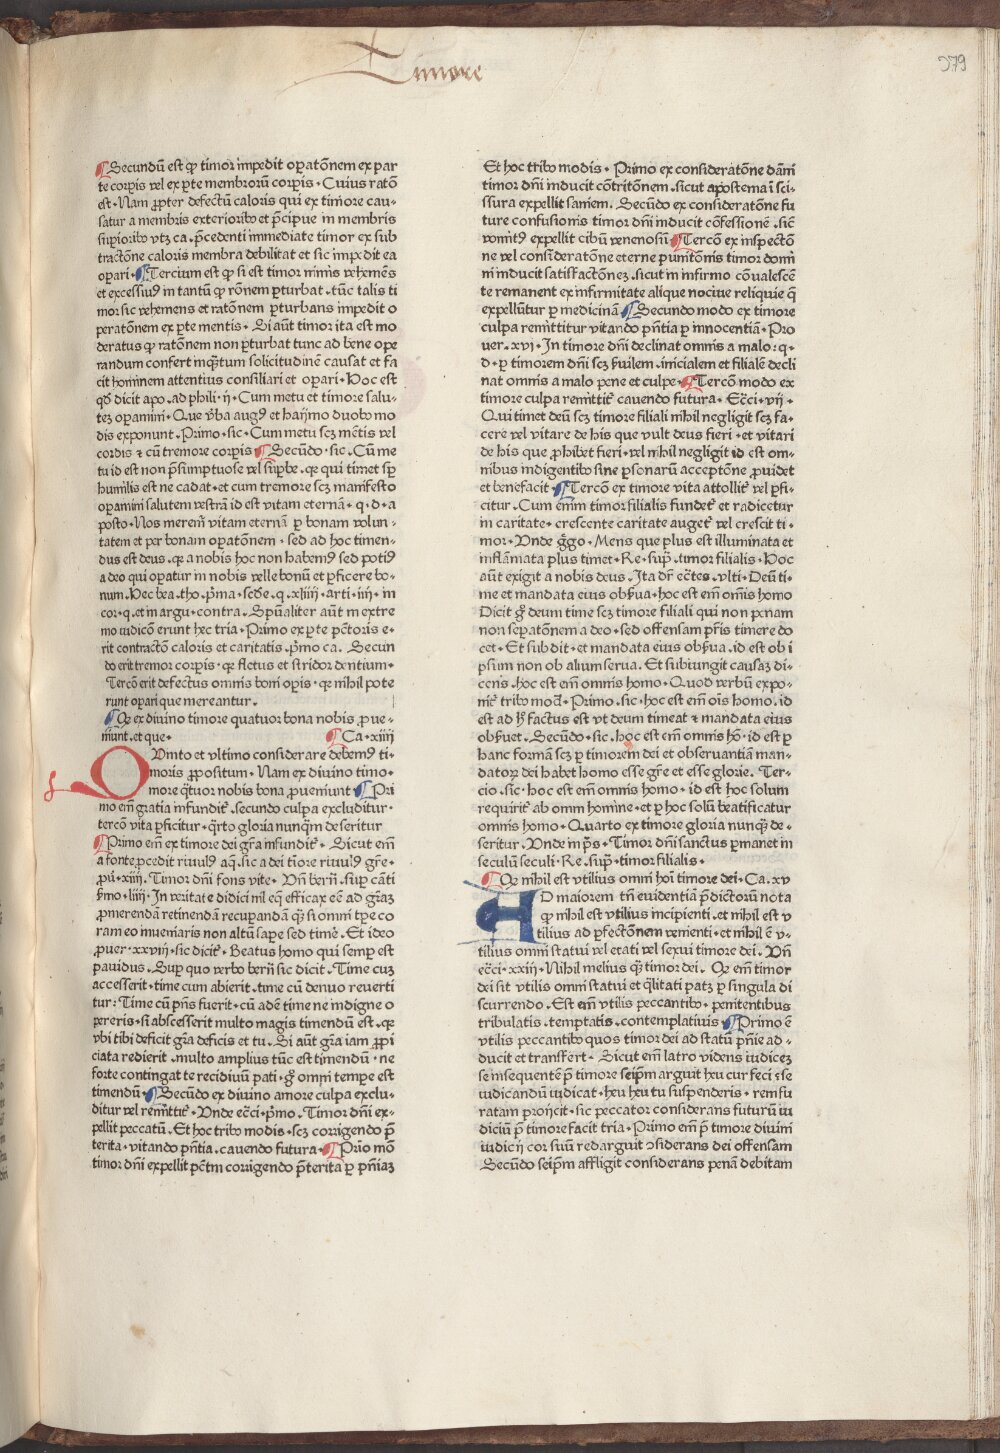 Timore
379
Secundū est ꝙ timor impedit oꝑatōnem ex par
te corꝑis vel ex ꝑte membrorū corꝑis · Cuius ratō
est · Nam ꝓpter defectū caloris qui ex timore cau-
satur a membris exteriorib⁹ et p̄cipue in membris
suꝑiorib⁹ vtꝫ ca. p̄cedenti immediate timor ex sub
tractōne caloris membra debilitat et sic impꝫdit ea
oꝑari · Tercium est ꝙ si est timor nimis vehemēs
et excessiu⁹ in tantū ꝙ rōnem ꝑturbat · tūc talis ti
mor sic vehemens et ratōnem ꝑturbans impedit o
peratōnem ex ꝑte mentis · Si aūt timor ita est mo
deratus ꝙ ratōnem non ꝑturbat tunc ad bene ope
randum confert inq̄tum solicitudinē causat et fa
cit hominem attentius consiliari et oꝑari · Hoc est
qđ dicit apo. ad phili · ij · Cum metu et timore salu-
teꝫ oꝑamini · Que v̄ba aug⁹ et haijmo duob⁹ mo
dis exponunt · Primo · sic · Cum metu scꝫ mētis vel
cordis ⁊ cū tremore corꝑis Secūdo · sic · Cū me
tu id est non p̄sumptuose vel suꝑbe · qꝛ qui timet sꝑ
humilis est ne cadat · et cum tremore scꝫ manifesto
oꝑamini salutem vestrā id est vitam eternā · q · d · a
posto · Nos merem̄ vitam eternā ꝑ bonam volun-
tatem et per bonam oꝑatōnem · sed ad hoc timen-
dus est deus · qꝛ a nobis hoc non habem⁹ sed poti⁹
a deo qui oꝑatur in nobis velle bonū et ꝑficere bo-
num. Hec bea · tho · p̄ma · scđe · q · xliiij · arti · iiij · in
cor · q · et in argu · contra · Spūaliter aūt in extre
mo iudicō erunt hec tria · Primo ex ꝑte pc̄toris e-
rit contractō caloris et caritatis · p̄mo ca. Secun
do erit tremor corꝑis · qꝛ fletus et stridor dentium ·
Tercō erit defectus omnis boni oꝑis · qꝛ nihil pote
runt oꝑari que mereantur.
Qꝛ ex diuino timore quatuor bona nobis ꝓue-
niunt · et que · Ca · xiiij
Vinto et vltimo considerare debem⁹ ti-
moris ꝓpositum · Nam ex diuino timo-
more q̄tuor nobis bona ꝓueniunt · Pri
mo em̄ gratia infundit᷑ · secundo culpa excluditur ·
tercō vita ꝑficitur · q̄rto gloria nunq̄m deseritur
Primo em̄ ex timore dei gr̄a infundit᷑ · Sicut em̄
a fonte ꝓcedit riuul⁹ aq̄, sic a dei tiōre riuul⁹ gr̄e ·
ꝓu · xiiij. Timor dn̄i fons vite · Vn̄ bern̄. suꝑ cāti
ẜmo · liiij · In veritate didici nil eq̄ efficax eē ad grāꝫ
ꝓmerendā retinendā recupandā q̄ꝫ si omni tꝑe co
ram eo inueniaris non altū sape sed timē · Et ideo
ꝓuer · xxviij · sic dicit᷑ · Beatus homo qui semꝑ est
pauidus · Suꝑ quo verbo bern̄ sic dicit · Time cuꝫ
accesserit · time cum abierit · time cū denuo reuerti
tur : Time cū pn̄s fuerit · cū adē time ne indigne o
pereris · si abscesserit multo magis timendū est · qꝛ
vbi tibi deficit gr̄a deficis et tu · Si aūt gr̄a iam ꝓpi
ciata redierit · multo amplius tūc est timendū · ne
forte contingat te recidiuū pati · g̊ omni tempe est
timendū · Secūdo ex diuino amore culpa exclu-
ditur vel remittit᷑ · Vnde ecc̄i · p̄mo · Timor dn̄i ex-
pellit peccatū · Et hoc trib⁹ modis · scꝫ corrigendo p̄
terita · vitando pn̄tia · cauendo futura · Prio mō
timor dn̄i expellit pc̄tm corrigendo p̄terita ꝑ pn̄iaꝫ
Et hoc trib⁹ modis · Primo ex consideratōne dāni
timor dn̄i inducit cōtritōnem · sicut apostema ī sci-
ssura expellit saniem. Secūdo ex consideratōne fu
ture confusionis timor dn̄i inducit cōfessionē · sic̄
vomit⁹ expellit cibū venenosū Tercō ex inspectō
ne vel consideratōne eterne punitōnis timor domi
ni inducit satisfactōneꝫ · sicut in infirmo cōualescē
te remanent ex infirmitate alique nociue reliquie q̄
expellūtur ꝑ medicinā · Secundo modo ex timore
culpa remittitur vitando pn̄tia ꝑ innocentiā · Pro
uer · xvj · In timore dn̄i declinat omnis a malo : q ·
d · ꝑ timorem dn̄i scꝫ ẜuilem · inicialem et filialē decli
nat omnis a malo pene et culpe · Tercō modo ex
timore culpa remittit᷑ cauendo futura · Ecc̄i · vij ·
Qui timet deū scꝫ timore filiali nihil negligit scꝫ fa-
cere vel vitare de his que vult deus fieri · et vitari
de his que ꝓhibet fieri · vel nihil negligit id est om-
nibus indigentib⁹ sine ꝑsonarū acceptōne ꝓuidet
et benefacit · Tercō ex timore vita attollit᷑ vel ꝑfi-
citur · Cum enim timor filialis fundet᷑ et radicetur
in caritate · crescente caritate auget᷑ vel crescit ti-
mor · Vnde g̊go · Mens que plus est illuminata et
inflāmata plus timet · Re · sup̄. timor filialis · Hoc
aūt exigit a nobis deus · Ita dr̄ ecc̄tes · vlti · Deū ti-
me et mandata eius obẜua · hoc est em̄ om̄is homo
Dicit g̊ deum time scꝫ timore filiali qui non pœnam
non seꝑatōnem a deo · sed offensam pr̄is timere do
cet · Et subdit · et mandata eius obẜua · id est ob i
psum non ob alium serua. Et subiungit causaꝫ di-
cens · hoc est em̄ omnis homo · Quod verbū expo-
nit᷑ trib⁹ mod̄ · Primo · sic · hoc est em̄ oīs homo. id
est ad h̄ factus est vt deum timeat ⁊ mandata eius
obẜuet · Secūdo · sic · hoc est em̄ omnis hō · id est ꝑ
hanc formā scꝫ ꝑ timorem dei et obseruantiā man-
datoꝝ dei habet homo esse gr̄e et esse glorie. Ter-
cio · sic · hoc est em̄ omnis homo · id est hoc solum
requirit᷑ ab omni homine · et ꝑ hoc solū beatificatur
omnis homo · Quarto ex timore gloria nunq̄ꝫ de-
seritur · Vnde in p̄s · Timor dn̄i sanctus ꝑmanet in
seculū seculi · Re · sup̄ · timor filialis ·
Qꝛ nihil est vtilius omni hoī timore dei · Ca. xv
AD maiorem tn̄ euidentiā p̄dictorū nota
ꝙ nihil est vtilius incipienti · et nihil est v
tilius ad ꝑfectōnem venienti · et nihil ē v-
tilius omni statui vel etati vel sexui timore dei · Vn̄
ecc̄i · xxiij · Nihil melius q̄ꝫ timor dei · Qꝛ em̄ timor
dei sit vtilis omni statui et q̄litati patꝫ ꝑ singula di
scurrendo · Est em̄ vtilis peccantib⁹ · penitentibus
tribulatis · temptatis · contemplatiuis · Primo ē
vtilis peccantib⁹ quos timor dei ad statū pn̄ie ad-
ducit et transfert · Sicut em̄ latro vidēs iudiceꝫ
se insequentē p̄ timore seip̄m arguit heu cur feci ⁊ se
iudicandū iudicat · heu heu tu suspenderis · rem fu
ratam proijcit · sic peccator considerans futurū iu
diciū p̄ timore facit tria · Primo em̄ p̄ timore diuini
iudicij cor suū redarguit ꝯsiderans dei offensam
Secūdo seip̄m affligit considerans penā debitam